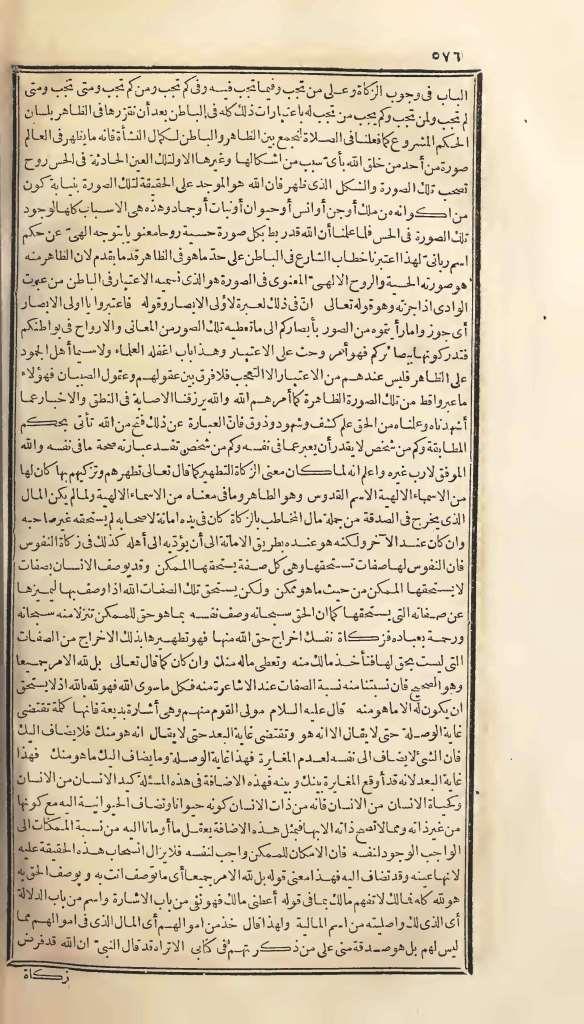 ٥٧٦
الباب فى وجوب الزكاة وعلى من تجب وفيما تجب فيه وفى كم تجب ومن كم تجب ومتى تجب ومتى
لم تجب ولمن تجب وكم يجب من تجب له باعتبارات ذلك كله فى الباطن بعد أن نقررها فى الظاهر بلسان
الحكم المشروع كما فعلنا فى الصلاة لنجمع بين الظاهر والباطن لكمال النشأة فانه ما يظهر فى العالم
صورة من أحد من خلق الله بأى سبب من اشكالها وغيرها الا ولتلك العين الحادثة فى الحس روح
تصحب تلك الصورة والشكل الذى ظهر فان الله هو الموجد على الحقيقة لتلك الصورة بنيابة كون
من اكوانه من ملك أو جن أو انس أو حيوان أو نبات أو جماد وهذه هى الاسباب كلها لوجود
تلك الصورة فى الحس فلما علمنا أن الله قد ربط بكل صورة حسية روحا معنويا بتوجه الهىّ عن حكم
اسم ربانىّ لهذا اعتبرنا خطاب الشارع فى الباطن على حد ما هو فى الظاهر قدما بقدم لان الظاهر منه
هو صورته الحسية والروح الالهىّ المعنوى فى الصورة هو الذى نسميه الاعتبار فى الباطن من عبرت
الوادى اذا جزته وهو قوله تعالى ان فى ذلك لعبرة لاولى الابصار وقوله فاعتبروا يا اولى الابصار
أى جوزوا مما رأيتموه من الصور بأبصاركم الى ما تعطيه تلك الصور من المعانى والارواح فى بواطنكم
فتدركونها ببصائركم فهو أمر وحث على الاعتبار وهذا باب اغفله العلماء ولا سيما أهل الجمود
على الظاهر فليس عندهم من الاعتبار الا التعجب فلا فرق بين عقولهم وعقول الصبيان فهؤلاء
ما عبروا قط من تلك الصورة الظاهرة كما أمرهم الله والله يرزقنا الاصابة فى النطق والاخبار عما
أشهدناه وعلمناه من الحق علم كشف وشهود وذوق فان العبارة عن ذلك فتح من الله تأتى بحكم
المطابقة وكم من شخص لا يقدر أن يعبر عما فى نفسه وكم من شخص تفسد عبارته صحة ما فى نفسه والله
الموفق لا رب غيره واعلم انه لما كان معنى الزكاة التطهير كما قال تعالى تطهرهم وتزكيهم بها كان لها
من الاسماء الالهية الاسم القدوس وهو الطاهر وما فى معناه من الاسماء الالهية ولما لم يكن المال
الذى يخرج فى الصدقة من جملة مال المخاطب بالزكاة كان فى يده امانة لاصحابه لم يستحقه غير صاحبه
وان كان عند الآخر ولكنه هو عنده بطريق الامانة الى أن يؤدّيه الى أهله كذلك فى زكاة النفوس
فان النفوس لها صفات تستحقها وهى كل صفة يستحقها الممكن وقد يوصف الانسان بصفات
لا يستحقها الممكن من حيث ما هو ممكن ولكن يستحق تلك الصفات الله اذا وصف بها ليميزها
عن صفاته التى يستحقها كما ان الحق سبحانه وصف نفسه بما هو حق للممكن تنزلا منه سبحانه
ورحمة بعباده فزكاة نفسك اخراج حق الله منها فهو تطهيرها بذلك الاخراج من الصفات
التى ليست بحق لها فتأخذ مالك منه وتعطى ماله منك وان كان كما قال تعالى بل لله الامر جميعا
وهو الصحيح فان نسبتنا منه نسبة الصفات عند الاشاعرة منه فكل ما سوى الله فهو لله بالله اذ لا يستحق
ان يكون له الا ما هو منه قال عليه السلام مولى القوم منهم وهى أشارة بديعة فانها كلمة تقتضى
غاية الوصلة حتى لا يقال الا انه هو وتقتضى غاية البعد حتى لا يقال انه هو منك فلا يضاف اليك
فان الشئ لا يضاف الى نفسه لعدم المغايرة فهذا غاية الوصلة وما يضاف اليك ما هو منك فهذا
غاية البعد لانه قد أوقع المغايرة بينك وبينه فهذه الاضافة فى هذه المسئلة كيد الانسان من الانسان
وكحياة الانسان من الانسان فانه من ذات الانسان كونه حيوانا وتضاف الحيوانية اليه مع كونها
من غير ذاته ومما لا تصح ذاته الا بها فبمثل هذه الاضافة يعقل ما أومأنا اليه من نسبة الممكنات الى
الواجب الوجود لنفسه فان الامكان للممكن واجب لنفسه فلا يزال انسحاب هذه الحقيقة عليه
لانها عينه وقد تضاف اليه فهذا معنى قوله بل لله الامر جميعا أى ما توصف انت به ويوصف الحق به
هو لله كله فمالك لا تفهم مالك بما فى قوله أعطنى مالك فهو نفى من باب الاشارة واسم من باب الدلالة
أى الذى لك واصليته من اسم المالية ولهذا قال خذ من اموالهم أى المال الذى فى اموالهم مما
ليس لهم بل هو صدقة منى على من ذكرتهم فى كتابى الاتراه قد قال النبىّ ان الله قد فرض
زكاة